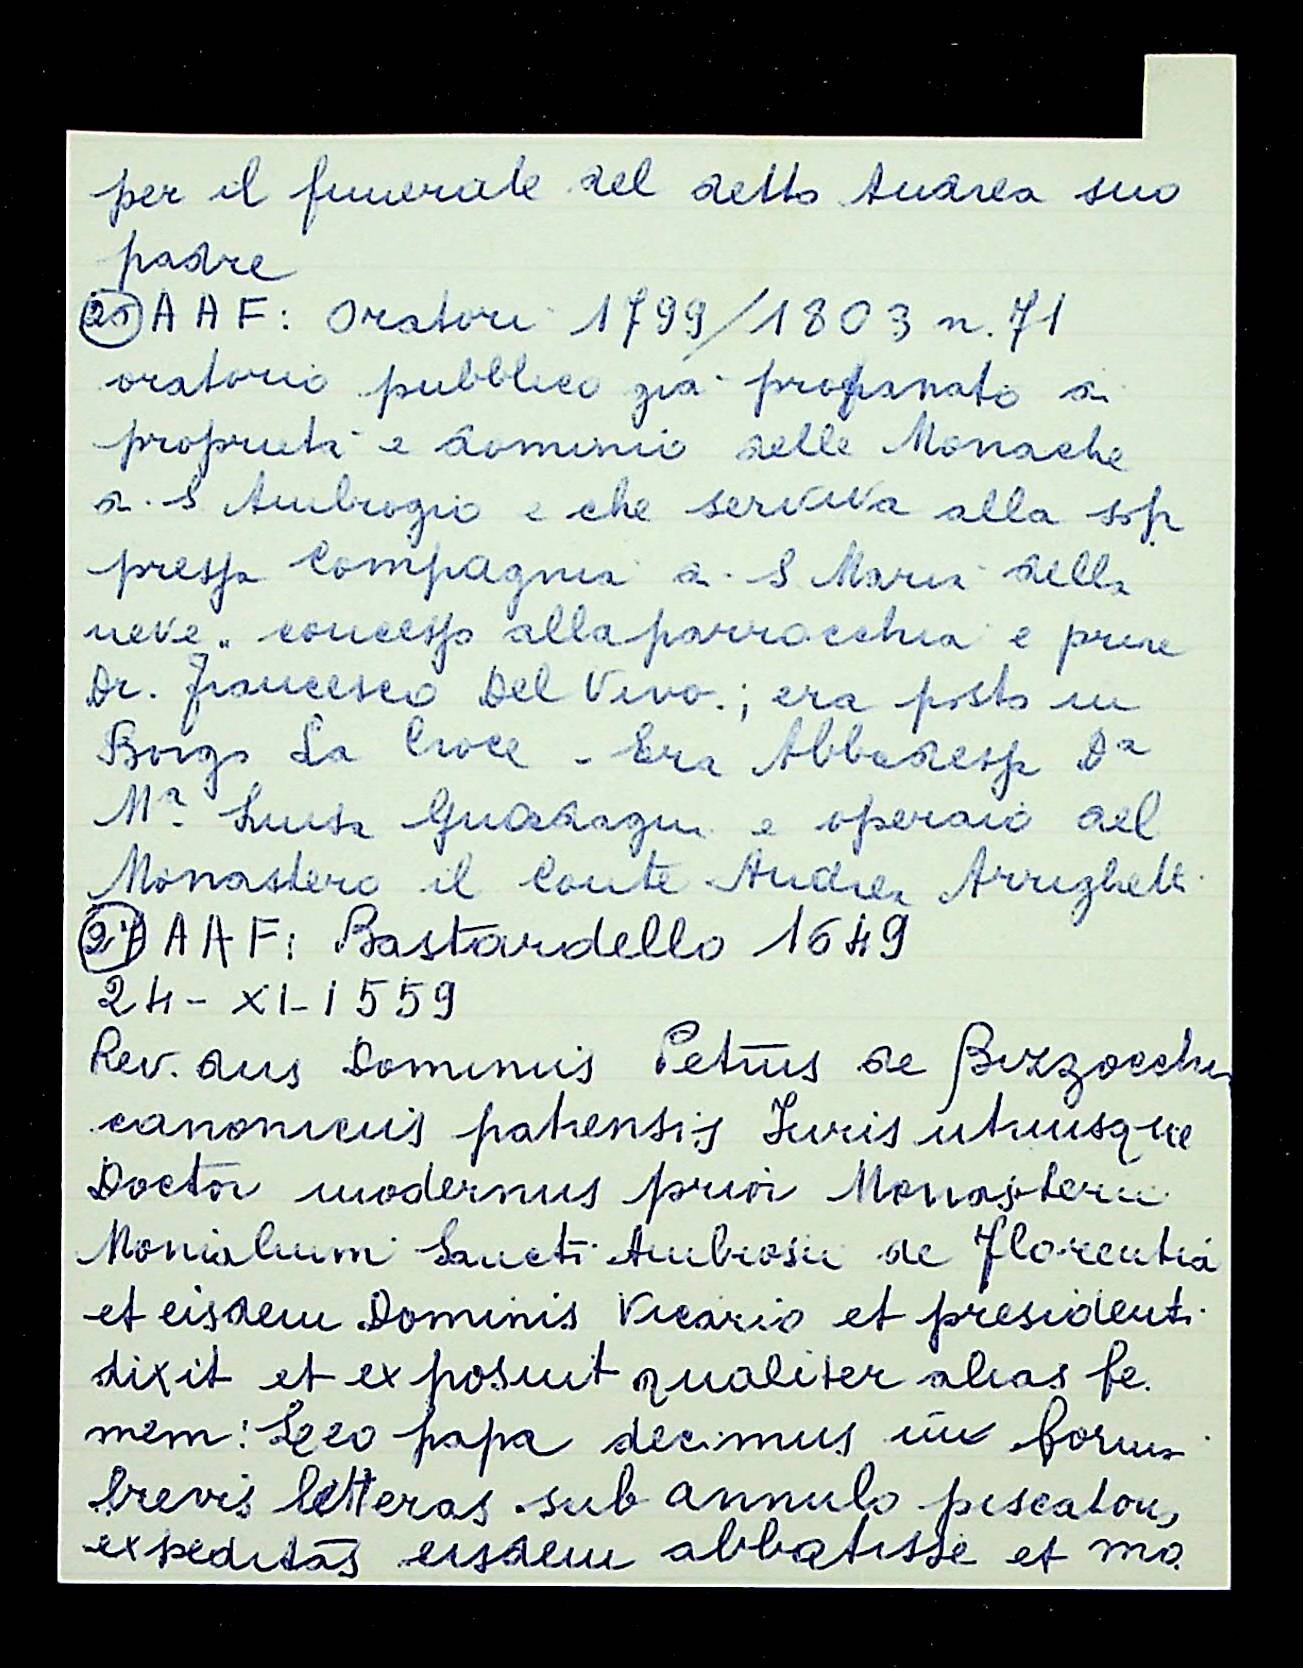 per il funerale del detto Andrea suo
padre
AAF: Oratori 1799/1803 n. 71
oratorio pubblico già profanato di
proprietà e dominio delle Monache
di S Ambrogio e che serviva alla sop
pressa Compagnia di S Maria della
neve" concesso alla parrocchia e
Dr. Francesco Del Vivo.; era posto in
Borgo La Croce - Era Abbadessa Dª
Mª Luisa Guadagni e operaio del
Monastero il Conte Andrea Arrighetti
27 AAF: Bastardello 1649
24-XI-1559
Rev. dus Dominus Petrus de Bizzocchi
canonicus patrensis Juris utriusque
Doctor modernus prior Monasterii
Monialium Sancti Ambrosii de Florentia
et eisdem Dominis Vicario et presidenti
dixit et exposuit qualiter alias fe.
mem: Leo papa decimus in forma
brevis letteras sub annulo piscatori,
expeditas eisdem abbatisse et mo.